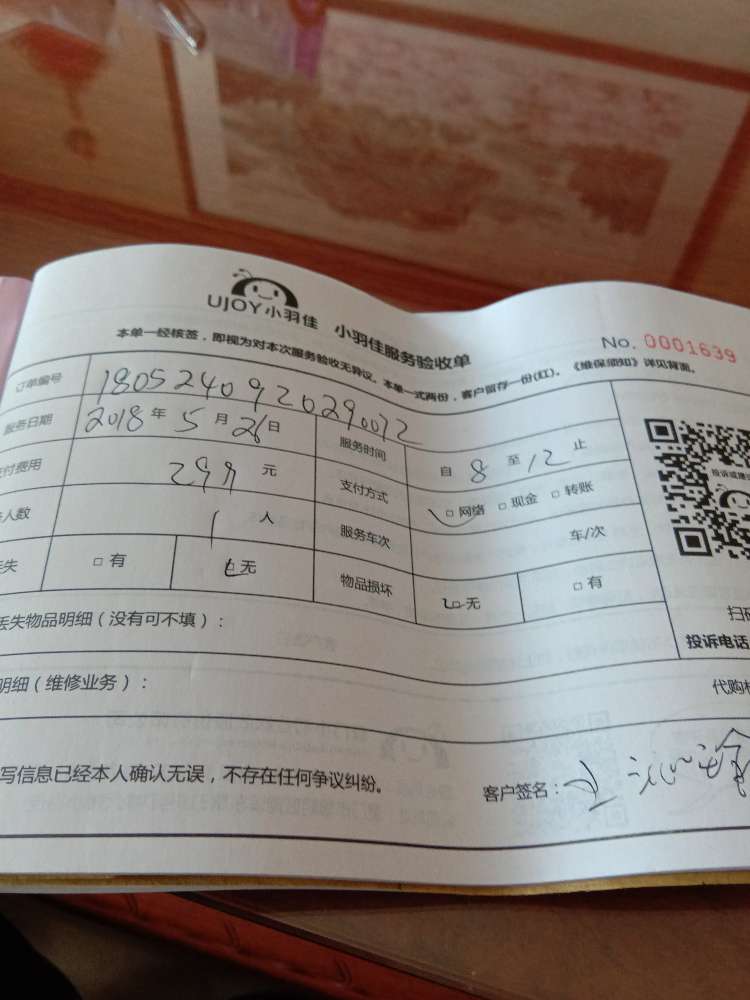 UJOY小羽佳 小羽佳服务验收单
No. 0001639
本单一经核签，即视为对本次服务验收无异议。本单一式两份，客户留存一份(红)。《维保须知》详见背面。
订单编号 1805240920290072
服务日期 2018年5月26日 服务时间 自8至12止
付费用 299元 支付方式 □网络 □现金 □转账
人数 1人 服务车次 车/次
失 □有 □无 物品损坏 □无 □有
丢失物品明细（没有可不填）：
明细（维修业务）：
写信息已经本人确认无误，不存在任何争议纠纷。
客户签名：
投诉或建议
扫码
投诉电话
代购材